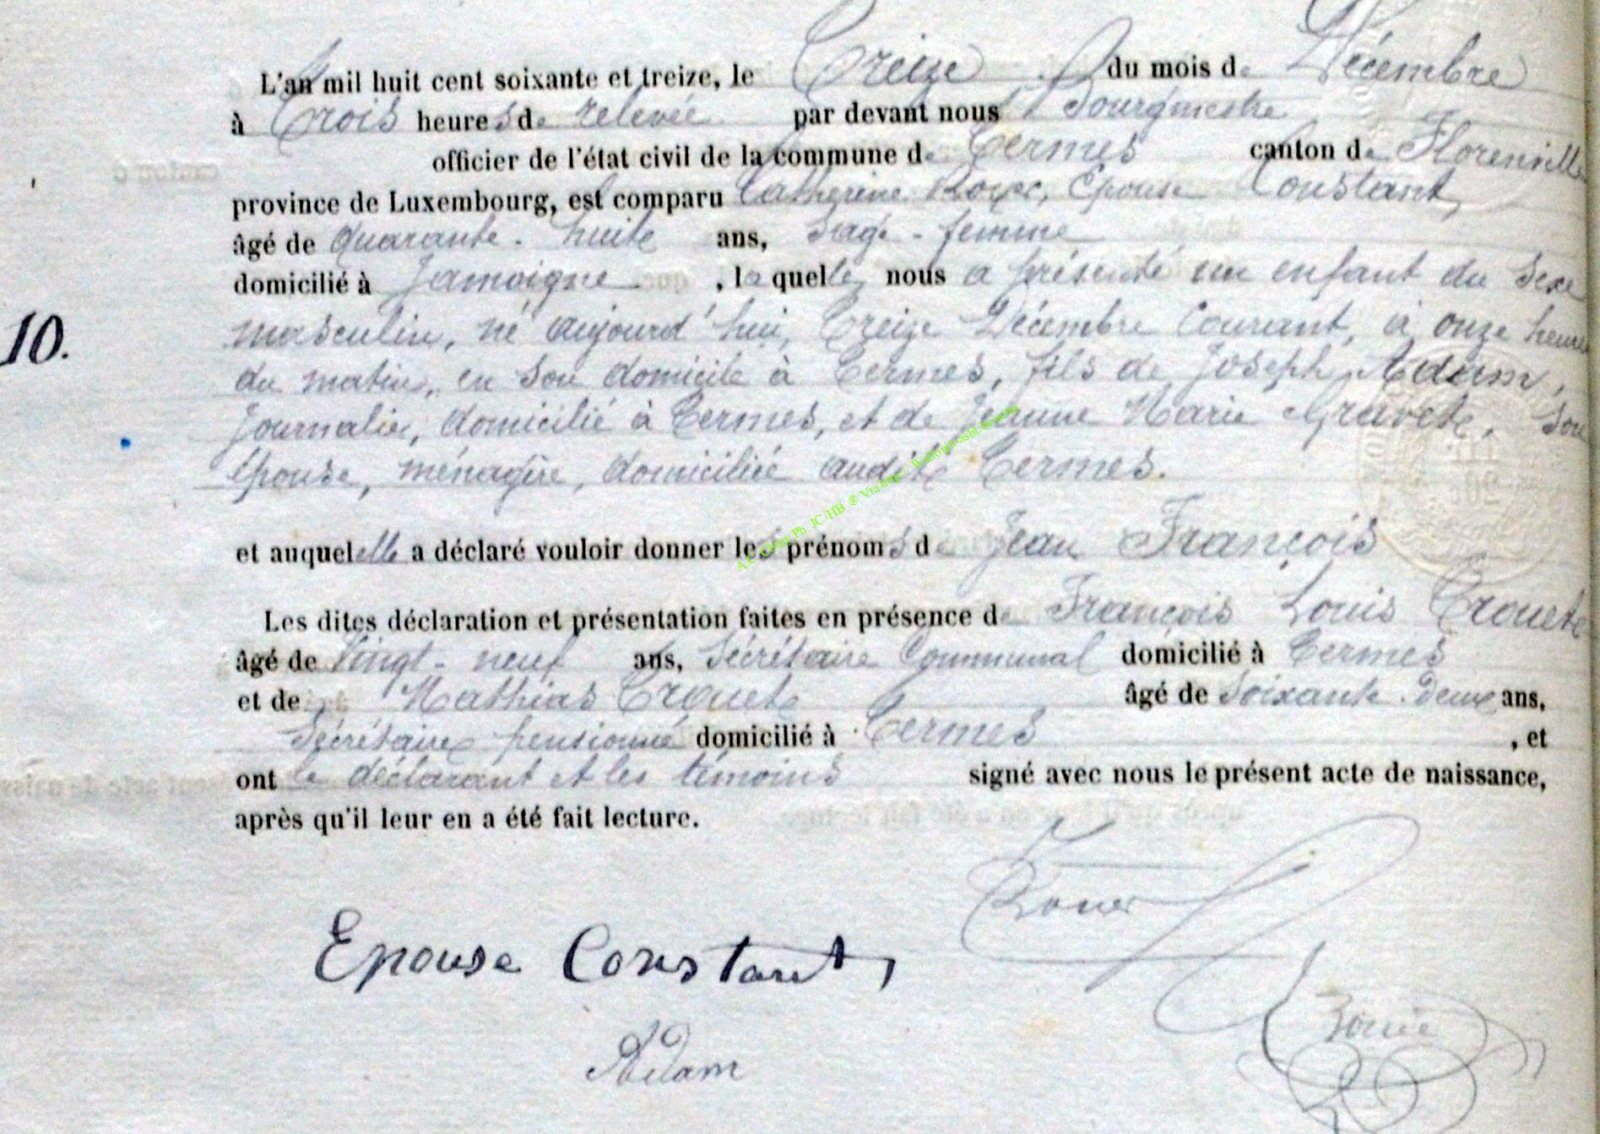 L'an mil huit cent soixante et treize, le Treize du mois de Décembre
à Trois heures de relevée par devant nous Bourgmestre
officier de l'état civil de la commune de Termes canton de Florenville
province de Luxembourg, est comparu Catherine Royer, Epouse Constant,
âgé de quarante-huit ans, Sage-femme
domicilié à Jamoigne, laquelle nous a présenté un enfant du Sexe
10. masculin, né aujourd'hui, Treize Décembre Courant, à onze heures
du matin, en son domicile à Termes, fils de Joseph Adam,
Journalier, domicilié à Termes, et de Jeanne Marie Gravet, son
épouse, ménagère, domiciliée audit Termes.
et auquel elle a déclaré vouloir donner les prénoms de Jean François
Les dites déclaration et présentation faites en présence de François Louis
âgé de Vingt-neuf ans, Secrétaire Communal domicilié à Termes
et de Mathias âgé de Soixante-deux ans,
Secrétaire pensionné domicilié à Termes, et
ont le déclarant et les témoins signé avec nous le présent acte de naissance,
après qu'il leur en a été fait lecture.
Epouse Constant,
Adam